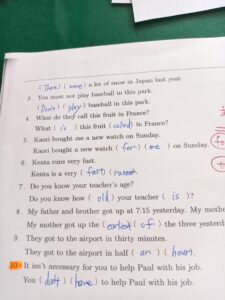 (There) (were) a lot of snow in Japan last year.
3. You must not play baseball in this park.
(Don't) (play) baseball in this park.
4. What do they call this fruit in France?
What (is) this fruit (called) in France?
5. Kaori bought me a new watch on Sunday.
Kaori bought a new watch (for) (me) on Sunday.
6. Kenta runs very fast.
Kenta is a very (fast)
7. Do you know your teacher's age?
Do you know how (old) your teacher (is)?
8. My father and brother got up at 7:15 yesterday. My mothe
My mother got up the (earliest) (of) the three yesterd
9. They got to the airport in thirty minutes.
They got to the airport in half (an) (hours.
10. It isn't necessary for you to help Paul with his job.
You (don't) (have) to help Paul with his job.